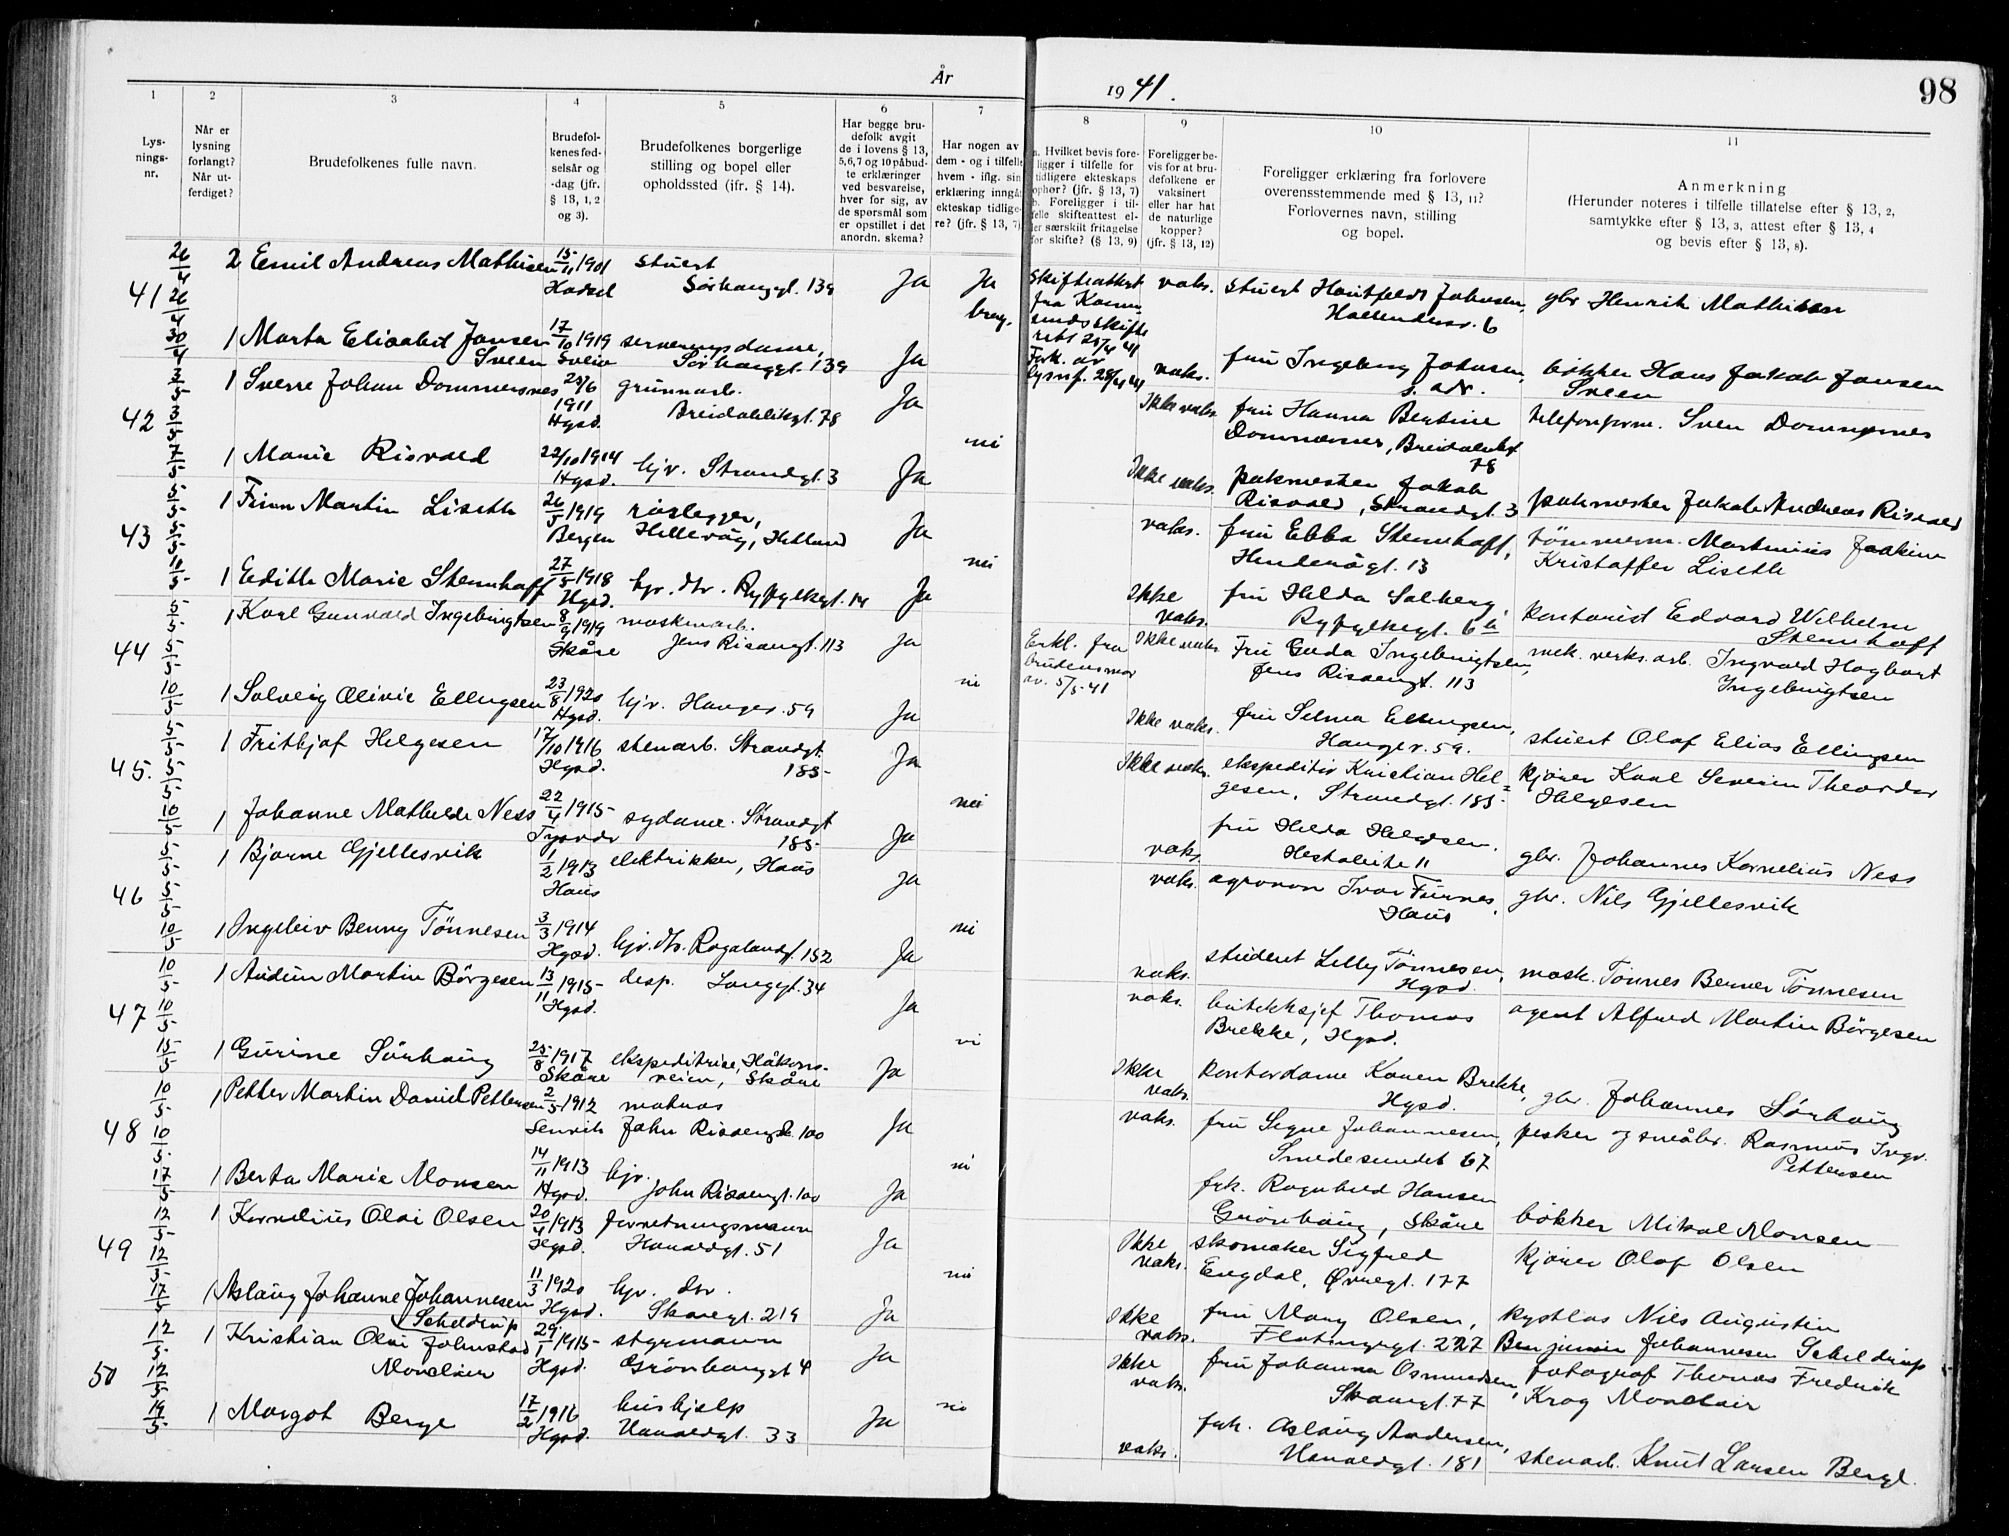 År
1941.
98
1
2
3
4
5
6
7
8
9
10
11
Lys-
nings-
nr.
Når er
lysning
forlangt?
Når ut-
ferdiget?
Brudefolkenes fulle navn.
Brudefol-
kenes fød-
selsår og
-dag (jfr.
§ 13, 1, 2
og 3).
Brudefolkenes borgerlige
stilling og bopel eller
opholdssted (ifr. § 14).
Har begge bru-
defolk avgit
de i lovens § 13,
5,6,7 og 10 påbud-
te erklæringer
ved besvarelse,
hver for sig, av
de spørsmål som
er opstillet i det
anordn. skema?
Har nogen av
dem - og i tilfelle
hvem - iflg. sin
erklæring inngåt
ekteskap tidlige-
re? (jfr. § 13, 7)
a. Hvilket bevis fore-
ligger i tilfelle for
tidligere ekteskaps
ophør? (jfr. § 13, 7)
b. Foreligger i til-
felle skifteattest el-
ler særskilt fritagelse
for skifte? (§ 13, 9)
Foreligger be-
vis for at bru-
defolkene er
vaksinert
eller har hat
de naturlige
kopper?
(jfr. § 13, 12)
Foreligger erklæring fra forlovere
overensstemmende med § 13, 11?
Forlovernes navn, stilling
og bopel.
Anmerkning
(Herunder noteres i tilfelle tillatelse efter § 13, 2,
samtykke efter § 13, 3, attest efter § 13, 4
og bevis efter § 13, 8).
41 26/4 26/4 2 Emil Andreas Mathisen 15/11 1901 stuert Ja Ja Skifteattest vaks. stuert Hautfeldt Johnsen, gbr Henrik Mathisen
Hadsel Sørhauggt. 139 brug. fra Karm- 6
sunds skifte
rett 28/4 41
30/4 1 Marta Elisabet Jansen 17/10 1919 serveringsdame, Ja vaks. fru Ingeborg Johnsen, bøkker Hans Jakob Jansen
Sveen Sveio Sørhauggt. 139 s. adr. Sveen
42 3/5 3/5 1 Sverre Johan Dommersnes 1911 grunnarb. Ja Ikke vaks. fru Hanna Bertine telefonform. Sven Dommersnes
Hgsd. Breidablikgt. 78 Dommersnes, Breidablikgt 78
7/5 1 Marie Risvold 22/10 1914 hjv. Strandgt. 3 Ja nei Ikke vaks. pakmester Jakob pakmester Jakob Andreas Risvold
Hgsd. Risvold, Strandgt. 3
43 5/5 5/5 1 Finn Martin Liseth 26/5 1919 rørlegger, Ja vaks. fru Ebba Stennhoff, tømmerm. Martinius Joakim
Bergen Hillevåg, Hetland 13 Kristoffer Liseth
10/5 1 Edith Marie Stennhoff 27/5 1918 hjv. dtr. Ryfylkegt. 14 Ja nei Ikke vaks. fru Hilda Solberg, kontorist Edvard Wilhelm
Hgsd. Ryfylkegt. 6 Stennhoff
44 5/5 5/5 1 Karl Gunvald Ingebrigtsen 8/9 1919 maskinarb. Ja Erkl. fra Ikke vaks Fru Guda Ingebrigtsen, mek. verks. arb. Ingvald Hagbart
Skåre Jens Risøengt. 113 brudens mor Jens Risøengt. 113 Ingebrigtsen
av. 5/5-41
10/5 1 Solveig Olivie Ellingsen 23/8 1920 hjv. Haugev. 59 Ja nei Ikke vaks. fru Selma Ellingsen, stuert Olaf Elias Ellingsen
Hgsd. Haugev. 59.
45. 5/5 5/5 1 Frithjof Helgesen 17/10 1916 stenarb. Strandgt. Ja Ikke vaks. ekspeditør Kristian Hel= kjører Karl Severin Theodor
Hgsd. 185 gesen, Strandgt. 185 Helgesen
10/5 1 Johanne Mathilde Ness 22/4 1915 sydame. Strandgt Ja nei vaks. fru Hilda Helgesen, gbr. Johannes Kornelius Ness
Tysvær 185 11
46 5/5 5/5 1 Bjarne Gjellesvik 1/2 1913 elektrikker, Haus Ja vaks. agronom Ivar Furnes, gbr. Nils Gjellesvik
Haus Haus
10/5 1 Ingebiv Benny Tønnesen 3/3 1914 hjv. dtr. Rogalandgt. 152 Ja nei vaks. student Lilly Tønnesen, mask. Tønnes Berner Tønnesen
Hgsd. Hgsd.
47 10/5 10/5 1 Audun Martin Börgesen 13/11 1915 desp. Langgt. 34 Ja vaks. butikksjef Thomas agent Alfred Martin Börgesen
Hgsd. Brekke, Hgsd.
15/5 1 Gurine Sörhaug 25/8 1917 ekspeditrise, Håkons- Ja nei Ikke vaks. kontordame Karen Brekke, gbr. Johannes Sörhaug
Skåre veien, Skåre Hgsd.
48 10/5 10/5 1 Petter Martin Daniel Pettersen 2/5 1912 matros Ja vaks. fru Signe Johannesen, fisker og småbr. Rasmus Ingv.
Lenvik John Risøengt. 100 Smedesundet 67 Pettersen
17/5 1 Berta Marie Monsen 14/11 1913 hjv. Ja nei frk. Ragnhild Hansen bökker Mikal Monsen
Hgsd. John Risøengt. 100 Grönhaug, Skåre
49 12/5 12/5 1 Kornelius Olai Olsen 20/4 1913 forretningsmann Ja Ikke vaks. skomaker Sigfred kjører Olaf Olsen
Hgsd. Haraldgt. 51 Engdal, Øvregt. 177
17/5 1 Aslaug Johanne Johannesen 11/3 1920 hjv. dtr. Ja nei Ikke vaks. fru Mary Olsen, kystlos Nils Augustin
Scheldrup Hgsd. Skåregt. 219 227 Benjamin Johannesen Scheldrup
50 12/5 12/5 1 Kristian Olai Johnstad 29/1 1915 styrmann Ja Ikke vaks. fru Johanna Osmundsen, fotograf Thomas Fredrik
Monclair Hgsd. Grönhauggt 4 Skåregt. 77 Krog Monclair
19/5 1 Margot Berge 17/2 1916 hushjelp Ja nei vaks. frk. Aslaug Andersen, stenarb. Knut Larsen Berge.
Hgsd. Haraldgt. 33 Haraldgt. 181